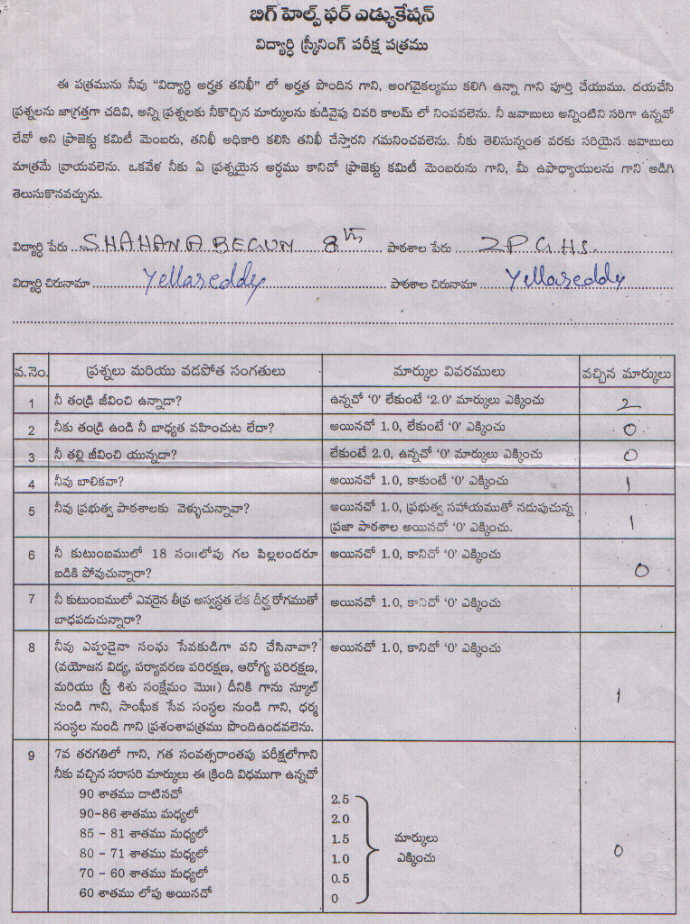 బిగ్ హెల్ప్ ఫర్ ఎడ్యుకేషన్
విద్యార్ధి స్క్రీనింగ్ పరీక్ష పత్రము
ఈ పత్రమును నీవు "విద్యార్ధి అర్హత తనిఖీ" లో అర్హత పొందిన గాని, అంగవైకల్యము కలిగి ఉన్నా గాని పూర్తి చేయుము. దయచేసి
ప్రశ్నలను జాగ్రత్తగా చదివి, అన్ని ప్రశ్నలకు నీకొచ్చిన మార్కులను కుడివైపు చివరి కాలమ్ లో నింపవలెను. నీ జవాబులు అన్నింటిని సరిగా ఉన్నవో
లేవో అని ప్రాజెక్టు కమిటీ మెంబరు, తనిఖీ అధికారి కలిసి తనిఖీ చేస్తారని గమనించవలెను. నీకు తెలిసున్నంత వరకు సరియైన జవాబులు
మాత్రమే వ్రాయవలెను. ఒకవేళ నీకు ఏ ప్రశ్నయైన అర్ధము కానిచో ప్రాజెక్టు కమిటీ మెంబరును గాని, మీ ఉపాధ్యాయులను గాని అడిగి
తెలుసుకొనవచ్చును.
విద్యార్ధి పేరు SHAHANA BEGUM 8th పాఠశాల పేరు ZPGHS.
విద్యార్ధి చిరునామా Yellareddy పాఠశాల చిరునామా Yellareddy
వ.నెం. ప్రశ్నలు మరియు వడపోత సంగతులు మార్కుల వివరములు వచ్చిన మార్కులు
1 నీ తండ్రి జీవించి ఉన్నాడా? ఉన్నచో '0' లేకుంటే '2.0' మార్కులు ఎక్కించు 2
2 నీకు తండ్రి ఉండి నీ బాధ్యత వహించుట లేదా? అయినచో 1.0, లేకుంటే '0' ఎక్కించు 0
3 నీ తల్లి జీవించి యున్నదా? లేకుంటే 2.0, ఉన్నచో '0' మార్కులు ఎక్కించు 0
4 నీవు బాలికవా? అయినచో 1.0, కాకుంటే '0' ఎక్కించు 1
5 నీవు ప్రభుత్వ పాఠశాలకు వెళ్ళుచున్నావా? అయినచో 1.0, ప్రభుత్వ సహాయముతో నడుపుచున్న
ప్రజా పాఠశాల అయినచో '0' ఎక్కించు. 1
6 నీ కుటుంబములో 18 సం॥లోపు గల పిల్లలందరూ అయినచో 1.0, కానిచో '0' ఎక్కించు
బడికి పోవుచున్నారా? 0
7 నీ కుటుంబములో ఎవరైన తీవ్ర అస్వస్థత లేక దీర్ఘ రోగముతో అయినచో 1.0, కానిచో '0' ఎక్కించు
బాధపడుచున్నారా?
8 నీవు ఎప్పుడైనా సంఘ సేవకుడిగా పని చేసినావా? అయినచో 1.0, కానిచో '0' ఎక్కించు
(వయోజన విద్య, పర్యావరణ పరిరక్షణ, ఆరోగ్య పరిరక్షణ,
మరియు స్త్రీ శిశు సంక్షేమం మొ॥) దీనికి గాను స్కూల్
నుండి గాని, సాంఘీక సేవ సంస్థల నుండి గాని, ధర్మ 1
సంస్థల నుండి గాని ప్రశంశాపత్రము పొందిఉండవలెను.
9 7వ తరగతిలో గాని, గత సంవత్సరాంతపు పరీక్షలోగాని
నీకు వచ్చిన సరాసరి మార్కులు ఈ క్రింది విధముగా ఉన్నచో
90 శాతము దాటినచో 2.5
90-86 శాతము మధ్యలో 2.0
85 - 81 శాతము మధ్యలో 1.5 మార్కులు
80 - 71 శాతము మధ్యలో 1.0 ఎక్కించు 0
70 - 60 శాతము మధ్యలో 0.5
60 శాతము లోపు అయినచో 0